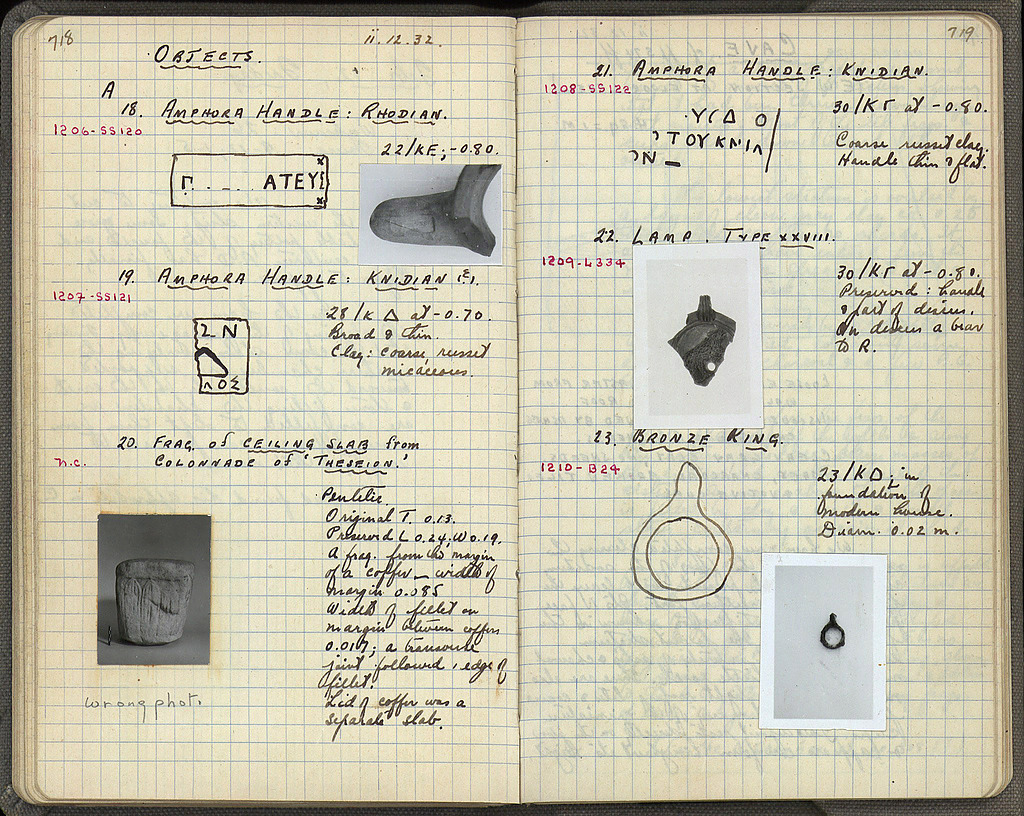 718
ii.12.32.
OBJECTS.
A
18. AMPHORA HANDLE: RHODIAN.
1206-SS120
22/ΚΕ; -0.80.
Γ . . _ . ΑΤΕΥΣ
19. AMPHORA HANDLE: KNIDIAN
1207-SS121
28/Κ Δ at -0.70.
Broad & thin.
Clay: coarse, russet
micaceous.
2 N
ΛΟΣ
20. FRAG. of CEILING SLAB from
n.c.
COLONNADE of 'THESEION.'
Pentelic
Original T. 0.13.
Preserved L 0.24; W 0.19.
A frag. from the margin
of a coffer – width of
margin 0.085
Width of fillet on
margin between coffers
0.017; a transverse
joint followed 1 edge of
fillet.
Lid of coffer was a
separate slab.
wrong photo
719
21. AMPHORA HANDLE: KNIDIAN.
1208-SS122
30/ΚΓ at -0.80.
Coarse russet clay.
Handle thin & flat.
ΥϹΔ Ο
ΤΟΥ ΚΝΙΛ
Ν –
22. LAMP. TYPE XXVIII.
1209-L334
30/ΚΓ at -0.80.
Preserved: handle
& part of discus.
On discus a bear
to R.
23. BRONZE RING.
1210-B24
23/ΚΔ; in
foundation of
modern house.
Diam. 0.02 m.